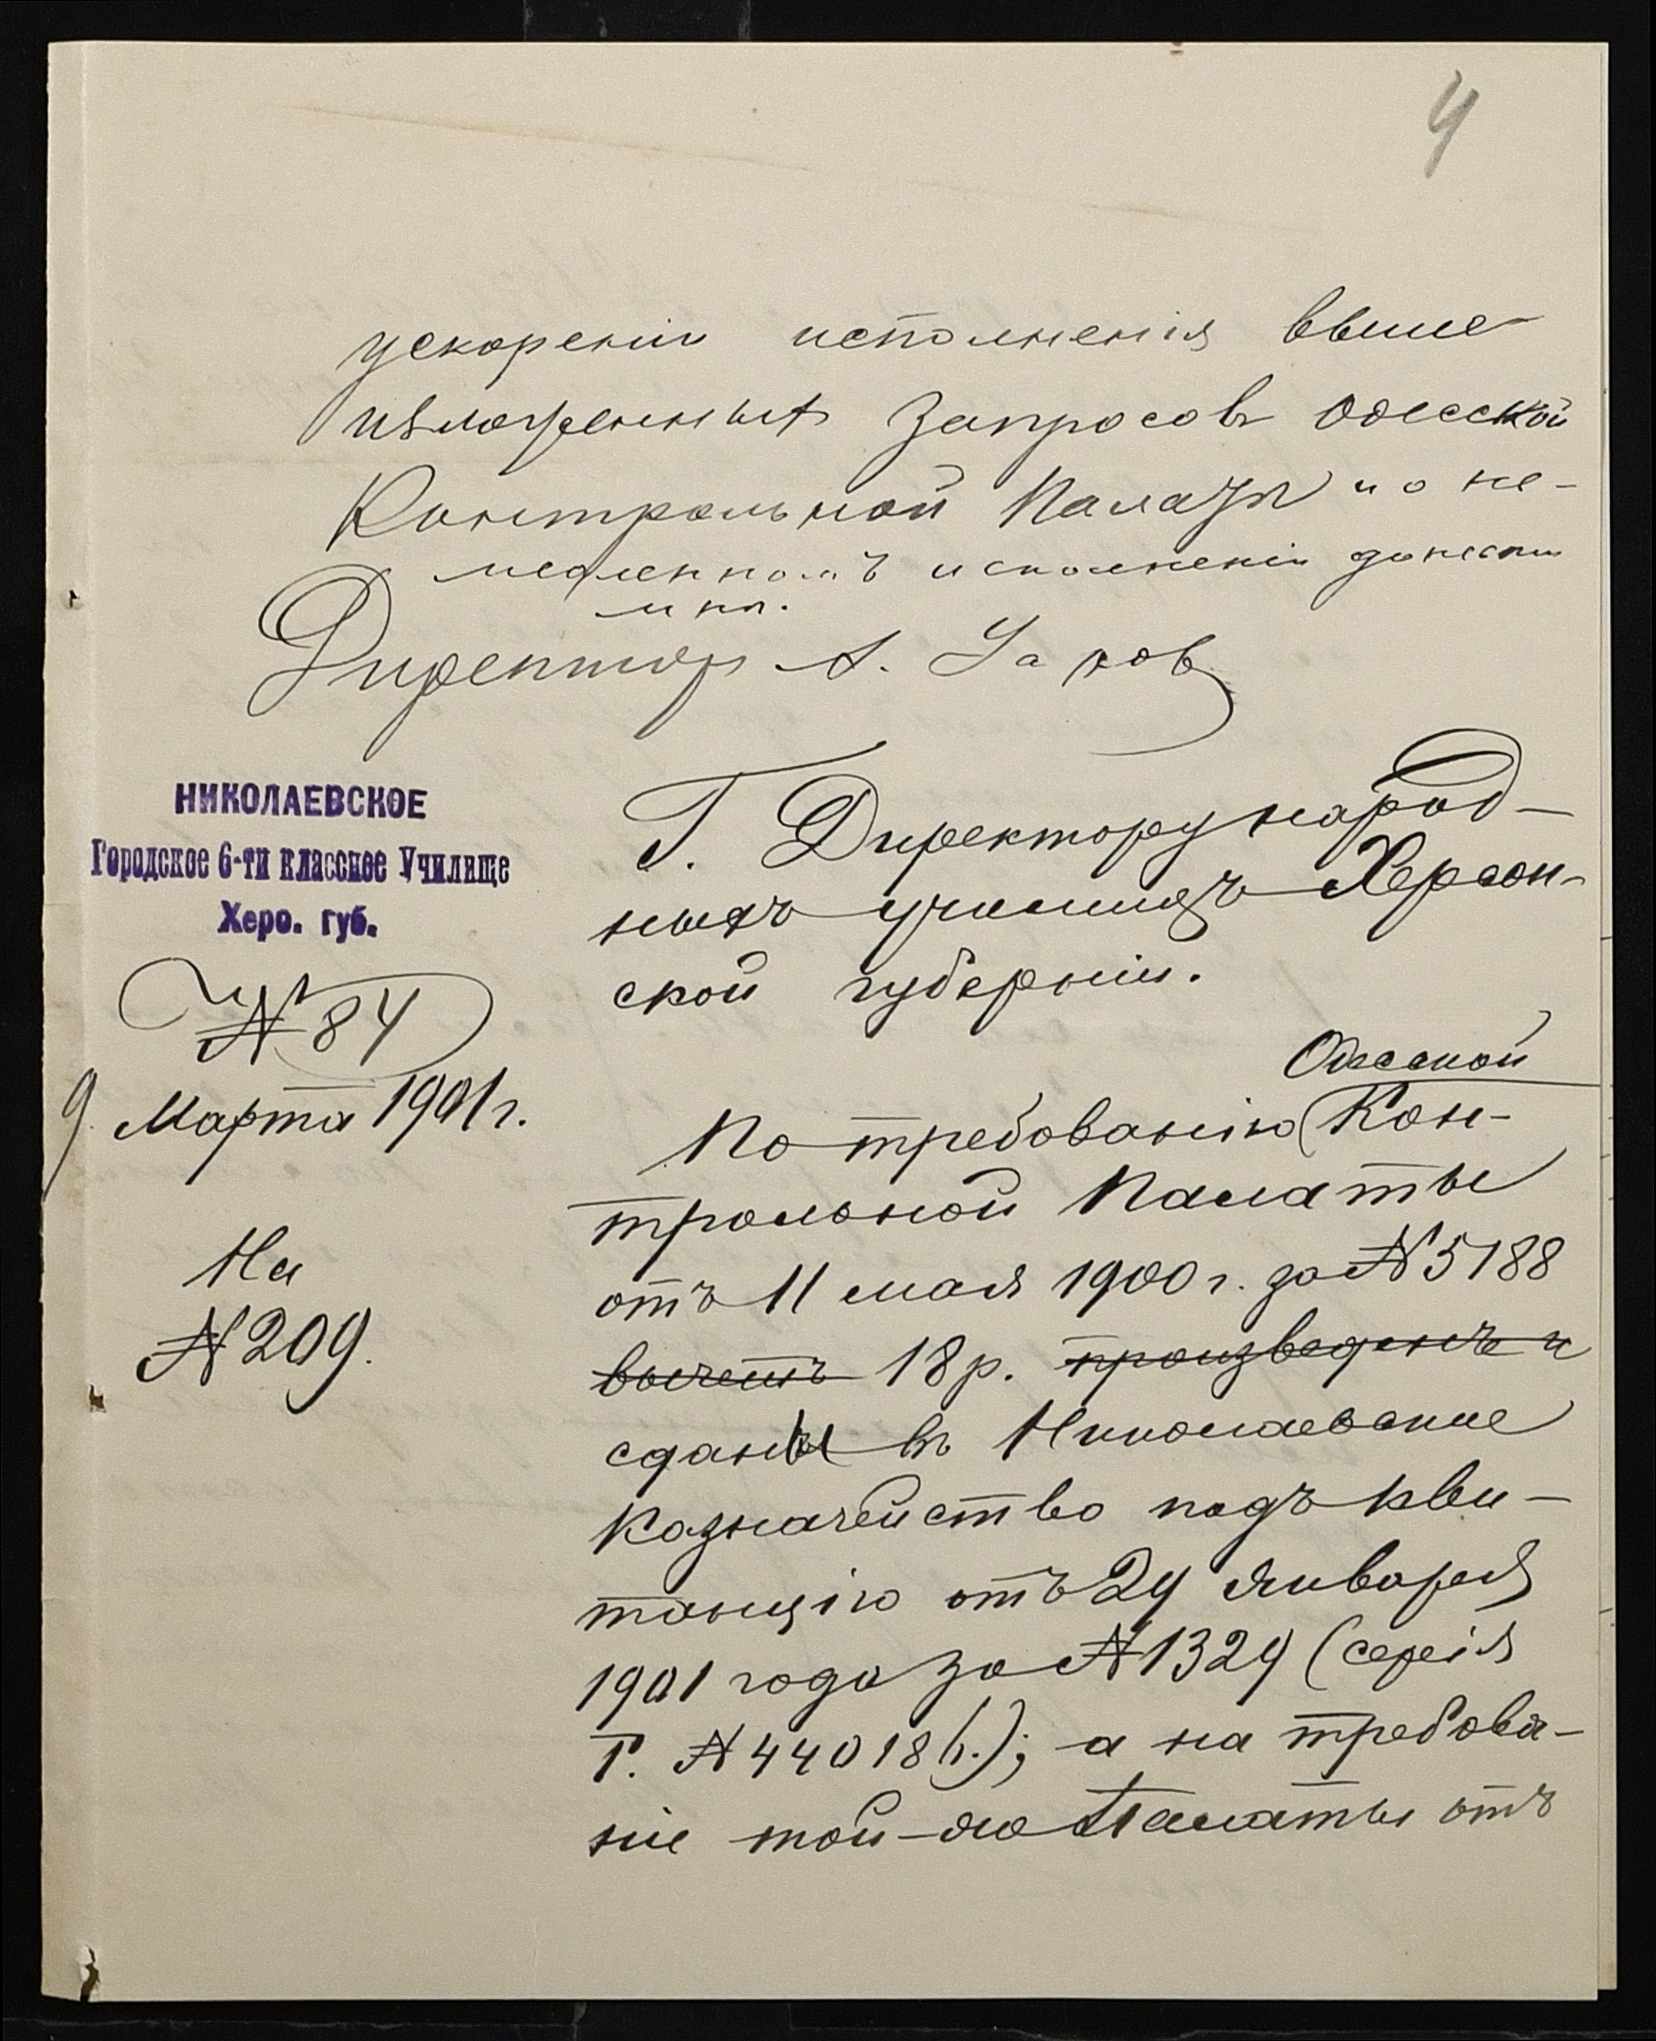 4
ускоренiи исполненiя выше
изложенныхъ запросовъ Одесской
Контрольной Палаты и о не-
медленномъ исполненiи донести
мнѣ.
Директоръ А.
НИКОЛАЕВСКОЕ
Городское 6-ти классное Училище
Херс. губ.
№ 84
9 Марта 1901 г.
На
№ 209.
Г. Директору народ-
ныхъ училищъ Херсон-
ской губернiи.
Одесской
По требованiю Кон-
трольной Палаты
отъ 11 мая 1900 г. за № 5188
вычетъ 18 р. произведенъ и
сданы въ Николаевское
Казначейство подъ кви-
танцiю отъ 24 Января
1901 года за № 1324 (серiя
Г. № 44018 ); а на требова-
нiе той-же Палаты отъ